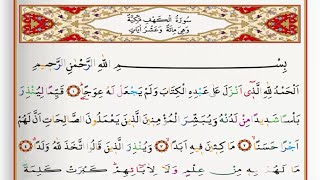 سُورَةُ الْكَهْفِ مَكِّيَّةٌ
وَهِيَ مِائَةٌ وَعَشْرُ اٰيَاتٍ
بِسْــــمِ اللّٰهِ الرَّحْمٰنِ الرَّحٖيـــمِ
اَلْحَمْدُ لِلّٰهِ الَّذٖٓى اَنْزَلَ عَلٰى عَبْدِهِ الْكِتَابَ وَلَمْ يَجْعَلْ لَهُ عِوَجًا ﴿١﴾ قَيِّمًا لِيُنْذِرَ
بَاْسًا شَدٖيدًا مِنْ لَدُنْهُ وَيُبَشِّرَ الْمُؤْمِنٖينَ الَّذٖينَ يَعْمَلُونَ الصَّالِحَاتِ اَنَّ لَهُمْ
اَجْرًا حَسَنًا ﴿٢﴾ مَاكِثٖينَ فٖيهِ اَبَدًا ﴿٣﴾ وَيُنْذِرَ الَّذٖينَ قَالُوا اتَّخَذَ اللّٰهُ وَلَدًا ﴿٤﴾
مَا لَهُمْ بِهٖ مِنْ عِلْمٍ وَلَا لِاٰبَٓائِهِمْ كَبُرَتْ كَلِمَةً